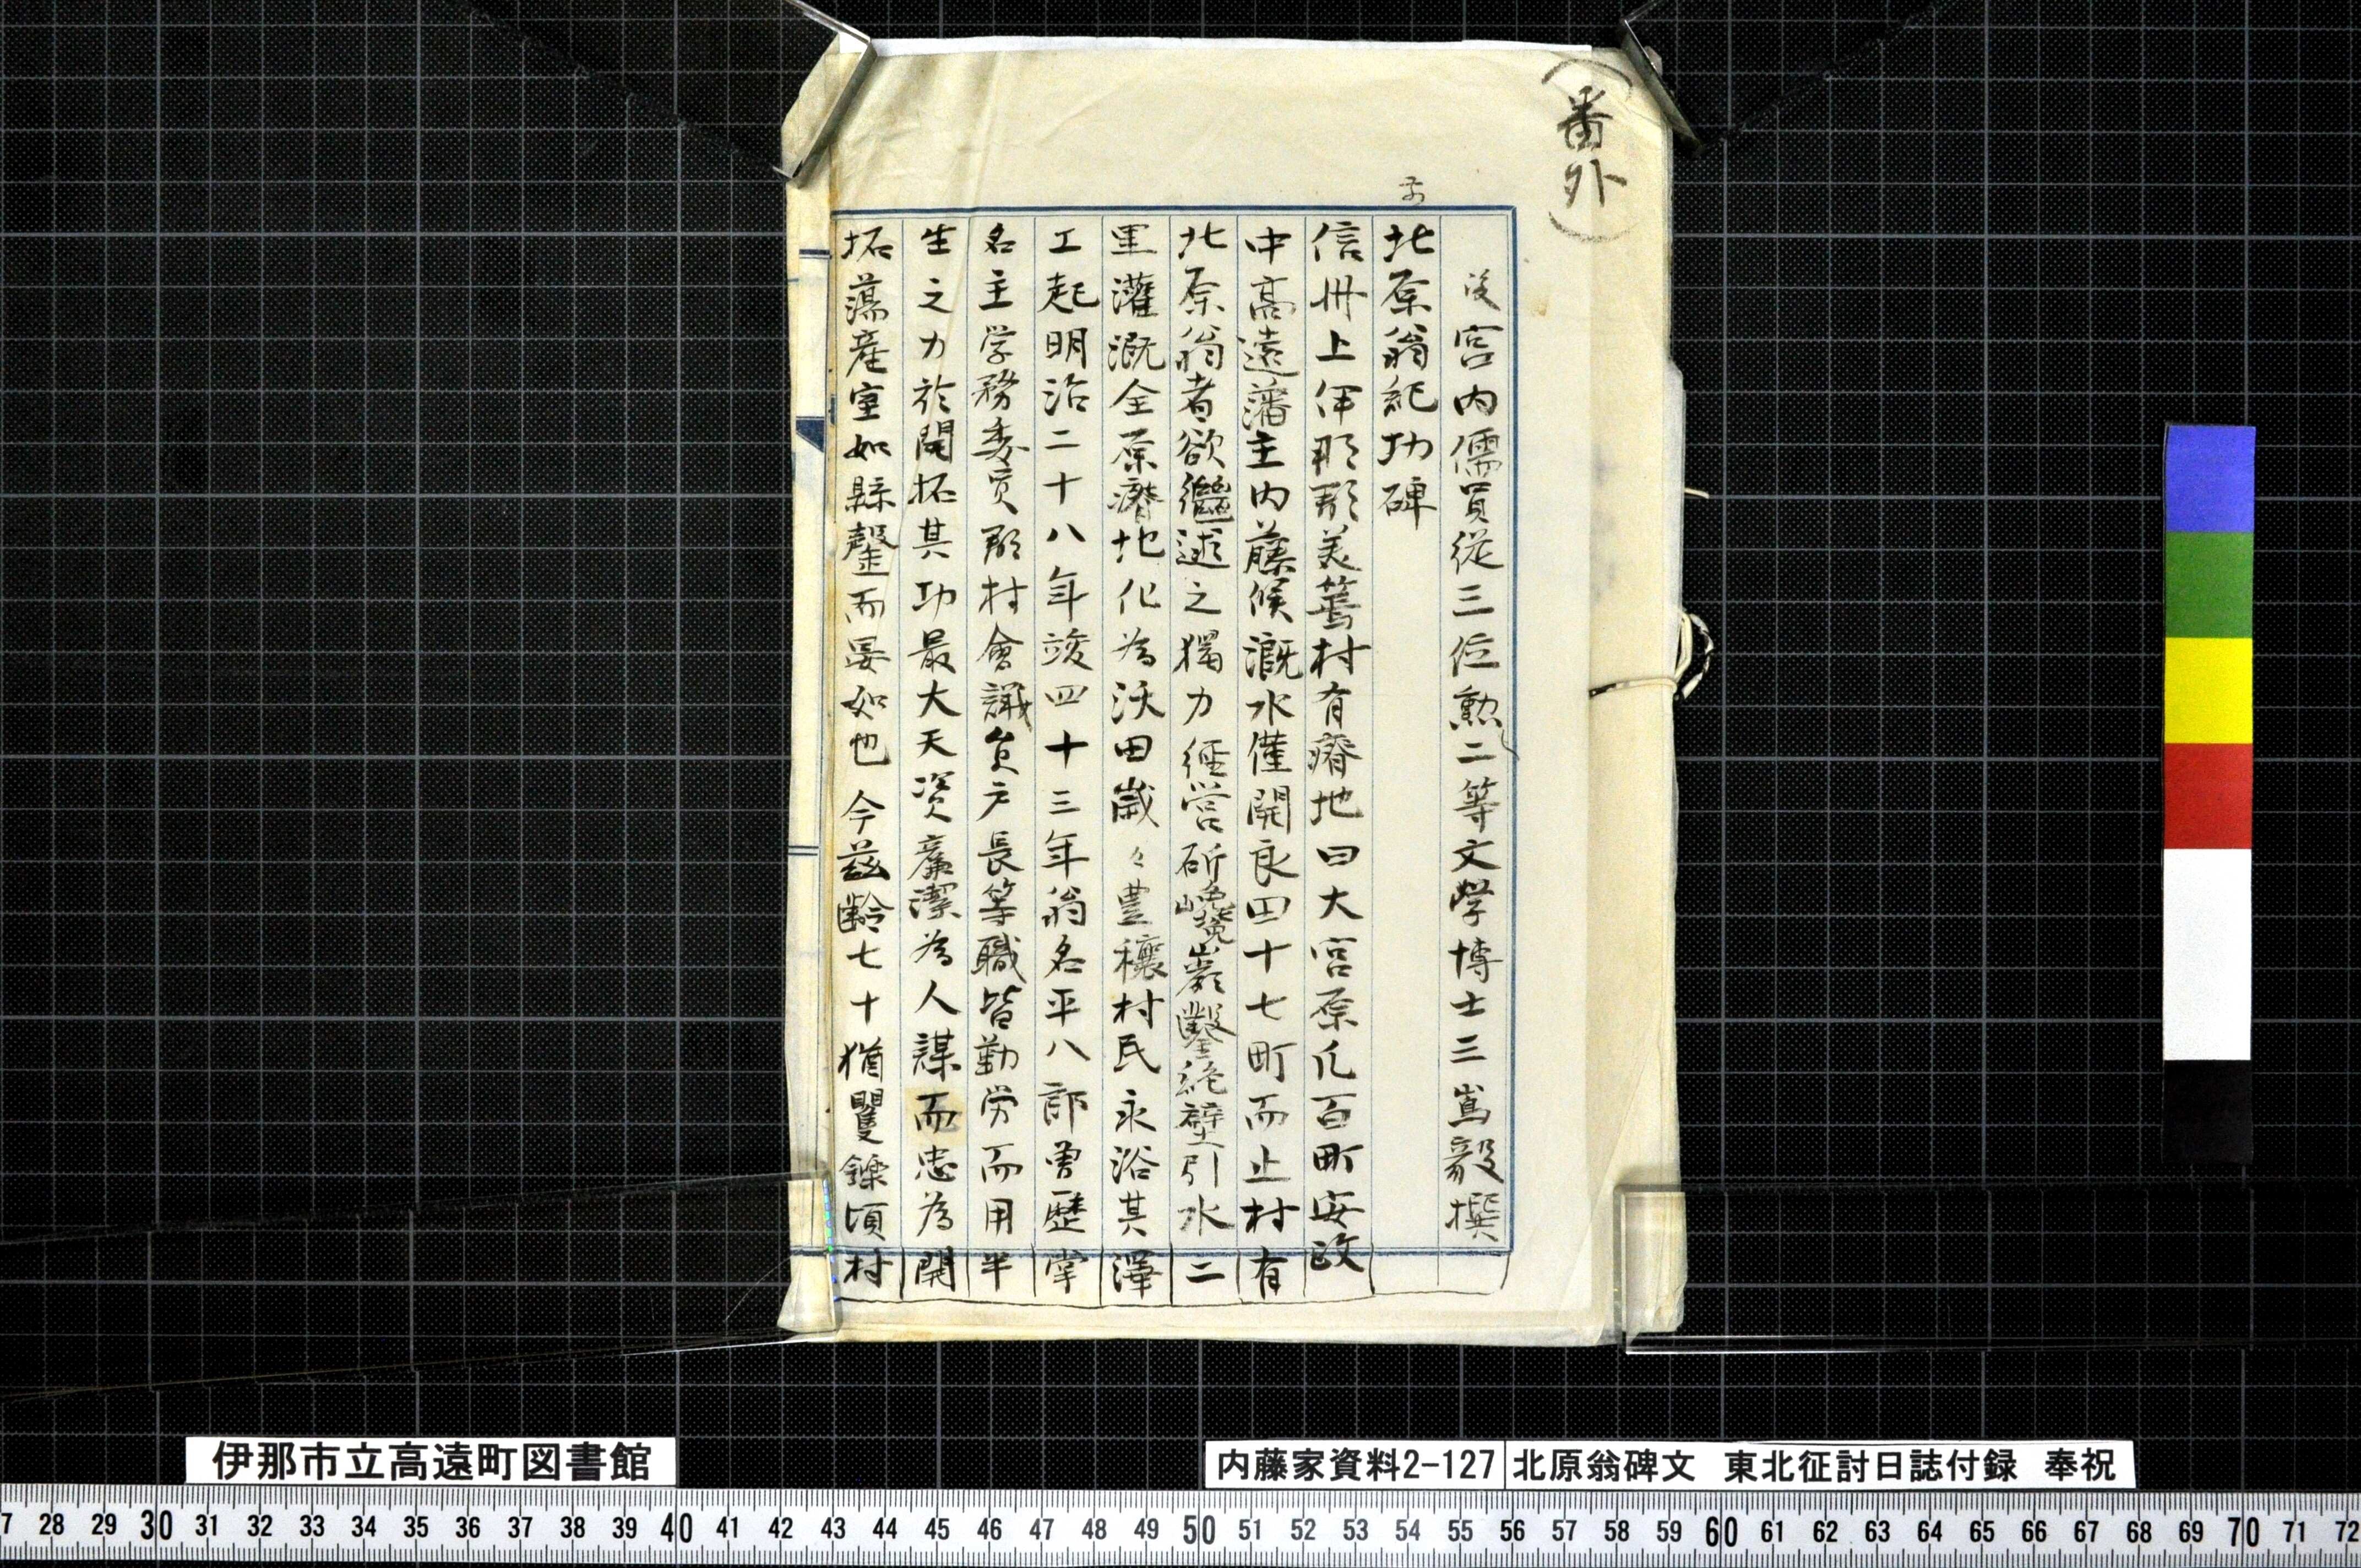 (番外)
後 宮内儒員従三位勲二等文学博士三嶌毅撰
前
北原翁紀功碑
信州上伊那郡美篶村有瘠地曰大宮原凡百町安政
中高遠藩主内藤候漑水僅開良田十七町而止村有
北原翁者欲繼述之獨力經営斫巉巖鑿絶壁引水二
里灌漑全原瘠地化為沃田歳々豊穣村民永浴其澤
工起明治二十八年竣四十三年翁名平八郎曽歴掌
名主学務委員郡村會議員戸長等職皆勤労而用半
生之力於開拓其功最大天資廉潔為人謀而忠為開
拓蕩産室如縣罄而晏如也今茲齢七十猶矍鑠頃村
伊那市立高遠町図書館
内藤家資料2-127 北原翁碑文 東北征討日誌付録 奉祝
7 28 29 30 31 32 33 34 35 36 37 38 39 40 41 42 43 44 45 46 47 48 49 50 51 52 53 54 55 56 57 58 59 60 61 62 63 64 65 66 67 68 69 70 71 72